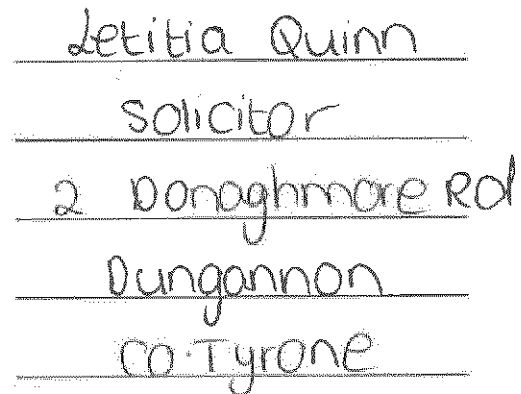 Letitia Quinn
Solicitor
2 Donaghmore Rd
Dungannon
CO. Tyrone